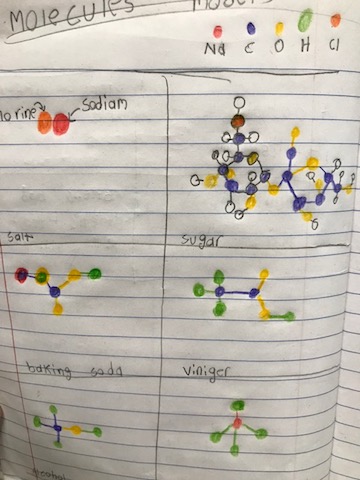 Molecules Model
Na C O H Cl
Sodiam
salt sugar
baking soda Viniger